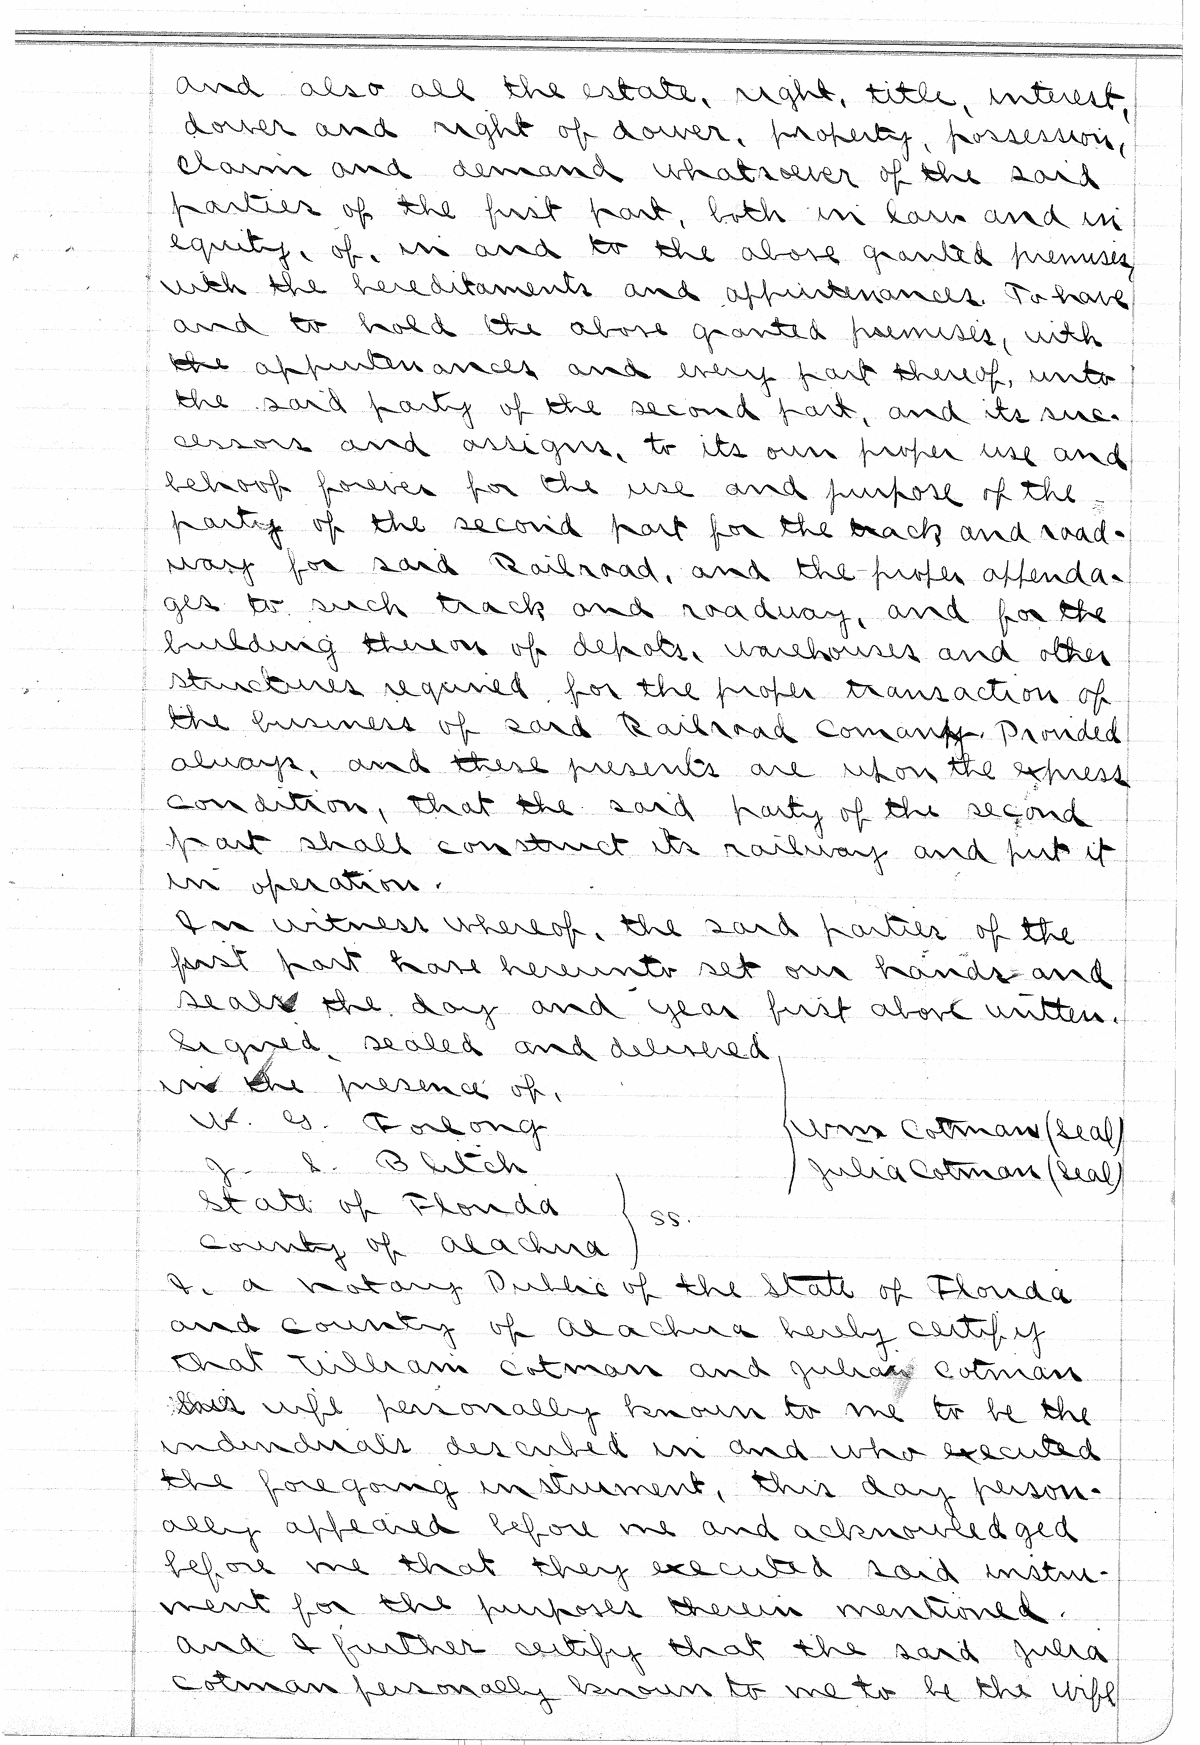 and also all the estate, right, title, interest,
dower and right of dower, property, possession,
claim and demand whatsoever of the said
parties of the first part, both in law and in
equity, of, in and to the above granted premises,
with the hereditaments and appurtenances. To have
and to hold the above granted premises, with
the appurtenances and every part thereof, unto
the said party of the second part, and its suc-
cessors and assigns, to its own proper use and
behoof forever for the use and purpose of the
party of the second part for the track and road-
way for said Railroad, and the proper appenda-
ges to such track and roadway, and for the
building thereon of depots, warehouses and other
structures required for the proper transaction of
the business of said Railroad Comany. Provided
always, and these presents are upon the express
condition, that the said party of the second
part shall construct its railway and put it
in operation.
In witness whereof, the said parties of the
first part have hereunto set our hands and
seals the day and year first above written.
Signed, sealed and delivered
in the presence of,
W. G. Forlong
Wm Cotman (Seal)
J. S. Blitch
Julia Cotman (Seal)
State of Florida
ss.
County of Alachua
I, a Notary Public of the State of Florida
and County of Alachua hereby certify
that William Cotman and Julia Cotman
his wife personally known to me to be the
individuals described in and who executed
the foregoing instrument, this day person-
ally appeared before me and acknowledged
before me that they executed said instru-
ment for the purposes therein mentioned.
and I further certify that the said Julia
Cotman personally known to me to be the wife